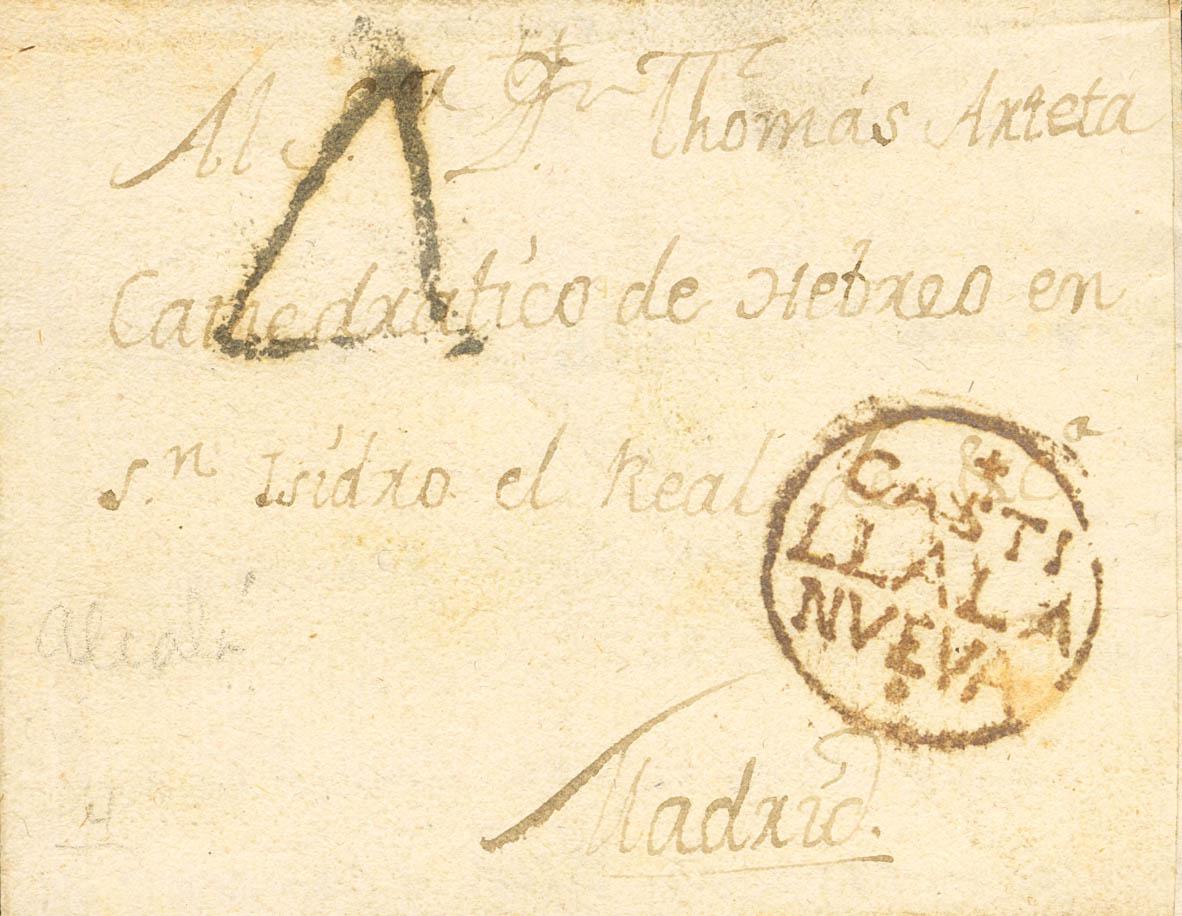 Al S.or Dr D. Thomás Arteta
Cathedratico de Hebreo en
S.n Isidro el Real de
CASTI
LLALA
NUEVA
Alcalá
Madrid.
4